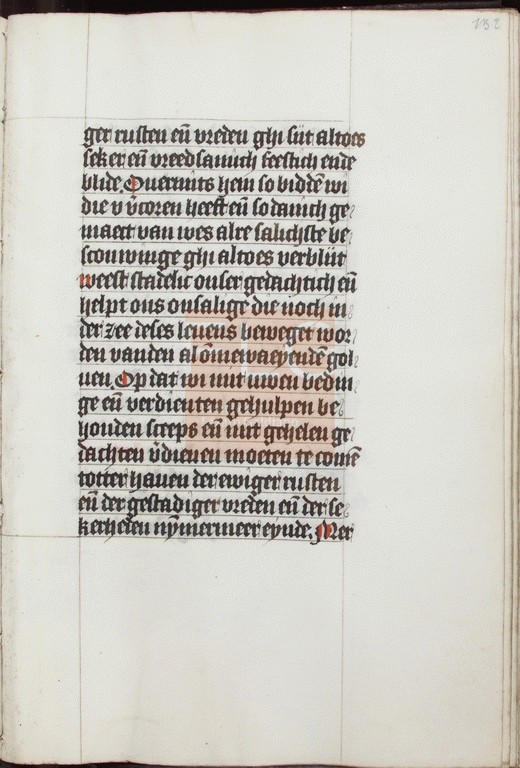 132
ger rusten eñ vreden ghi sijt altoes
seker eñ vreedsamich feestich ende
blide. Ouermits hem so biddē wi
die v v̄coren heeft eñ sodanich ge
maect van wes alre salichste be
scouwinge ghi altoes verblijt
weest stadelic onser gedachtich eñ
helpt ons onsalige die noch in
der zee deses leuens beweget wor
den vanden al ōmewaeyendē gol
uen. Op dat wi mit uwen bedin
ge eñ verdienten gehulpen be
houden sceeps eñ mit gehelen ge
dachten v̄dienen moeten te comē
totter hauen der ewiger rusten
eñ der gestadiger vreden eñ der se
kerheden nȳmermeer eynde. Mer